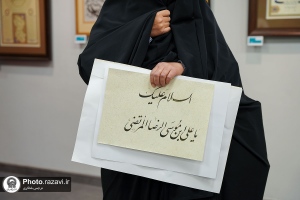 السلام علیک
یا علی ابن موسی الرضا المرتضی
Photo.razavi.ir